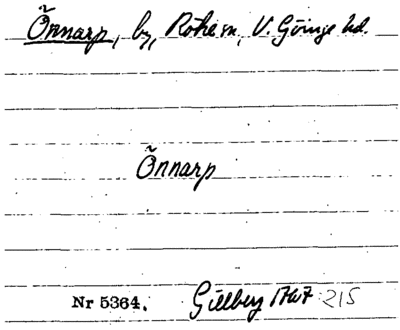 Õnnarp, by, Röke sn, V. Göinge hd.
Õnnarp
Nr 5364. Gillberg 1767 215